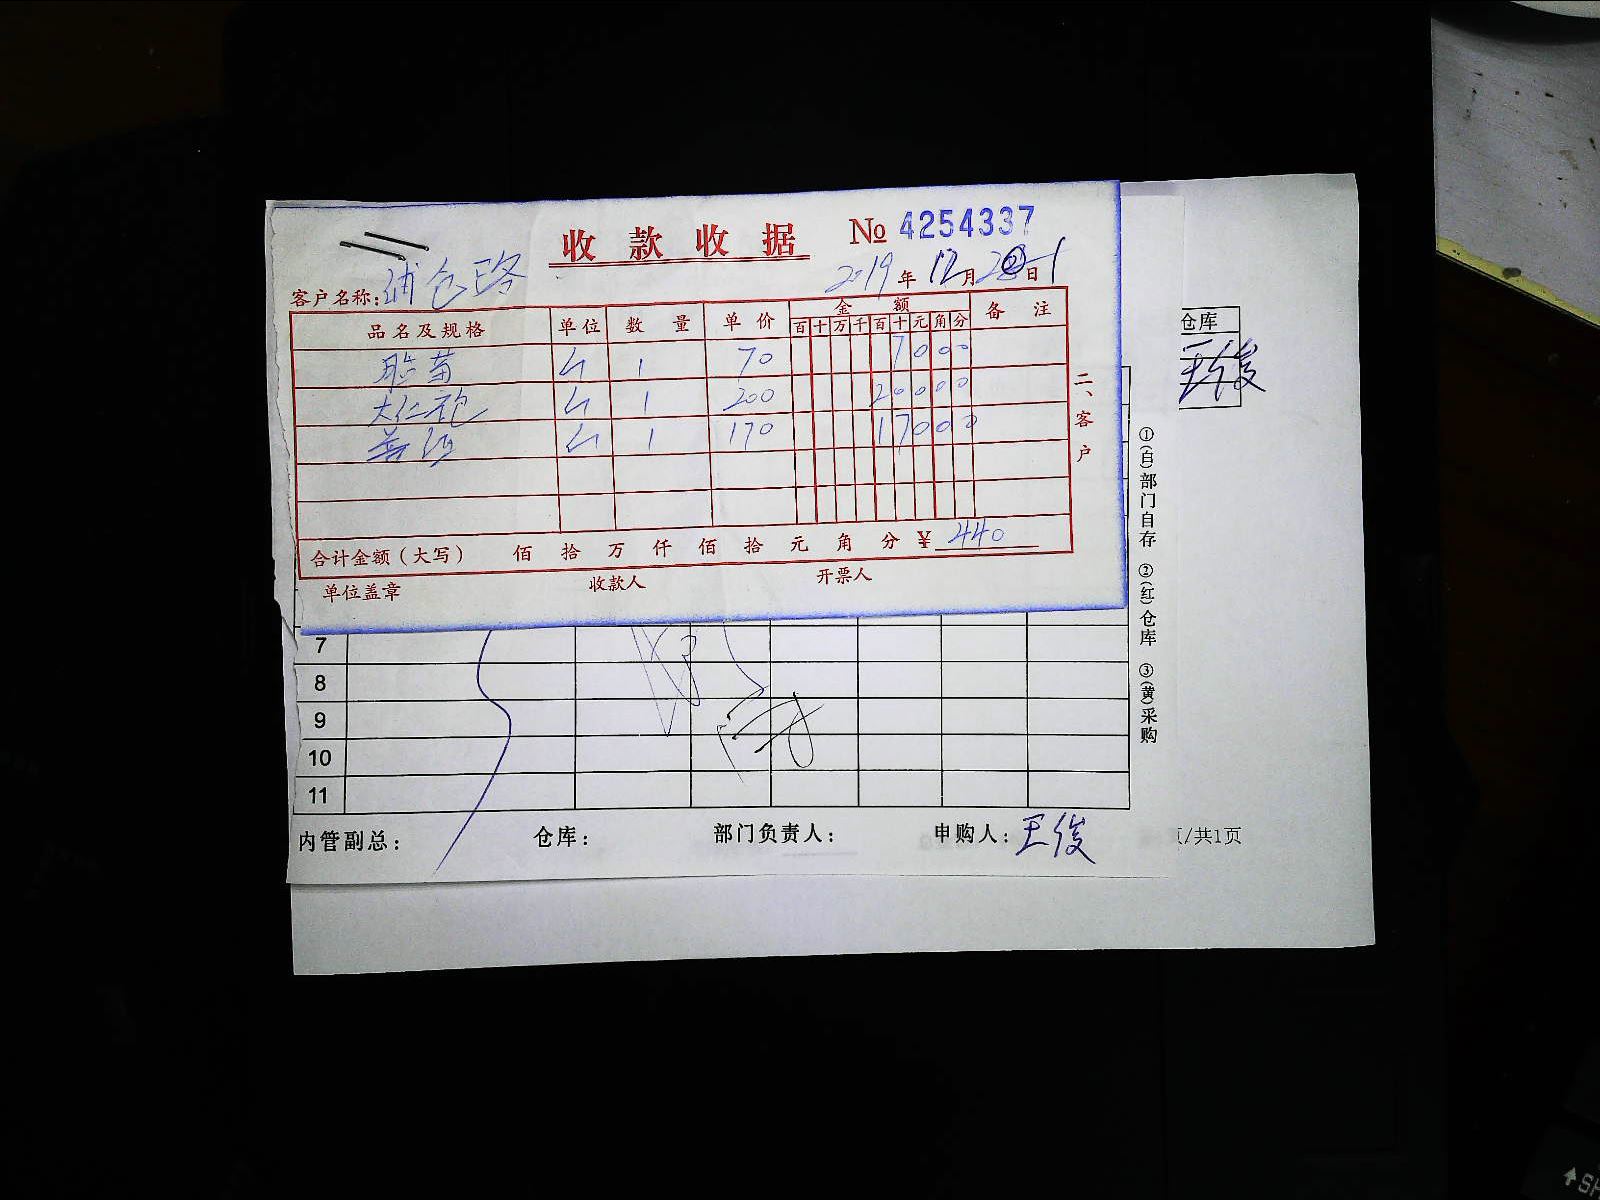 收款收据 № 4254337
2019年12月2日
客户名称:浦仓路
品名及规格 单位 数量 单价 金额 备注
百十万千百十元角分
1 70 7000
1 200 20000
1 170 17000
二、客户
合计金额(大写) 佰 拾 万 仟 佰 拾 元 角 分 ¥ 440
单位盖章 收款人 开票人
仓库
王俊
①(白)部门自存 ②(红)仓库 ③(黄)采购
7
8
9
10
11
内管副总: 仓库: 部门负责人: 申购人:王俊
页/共1页